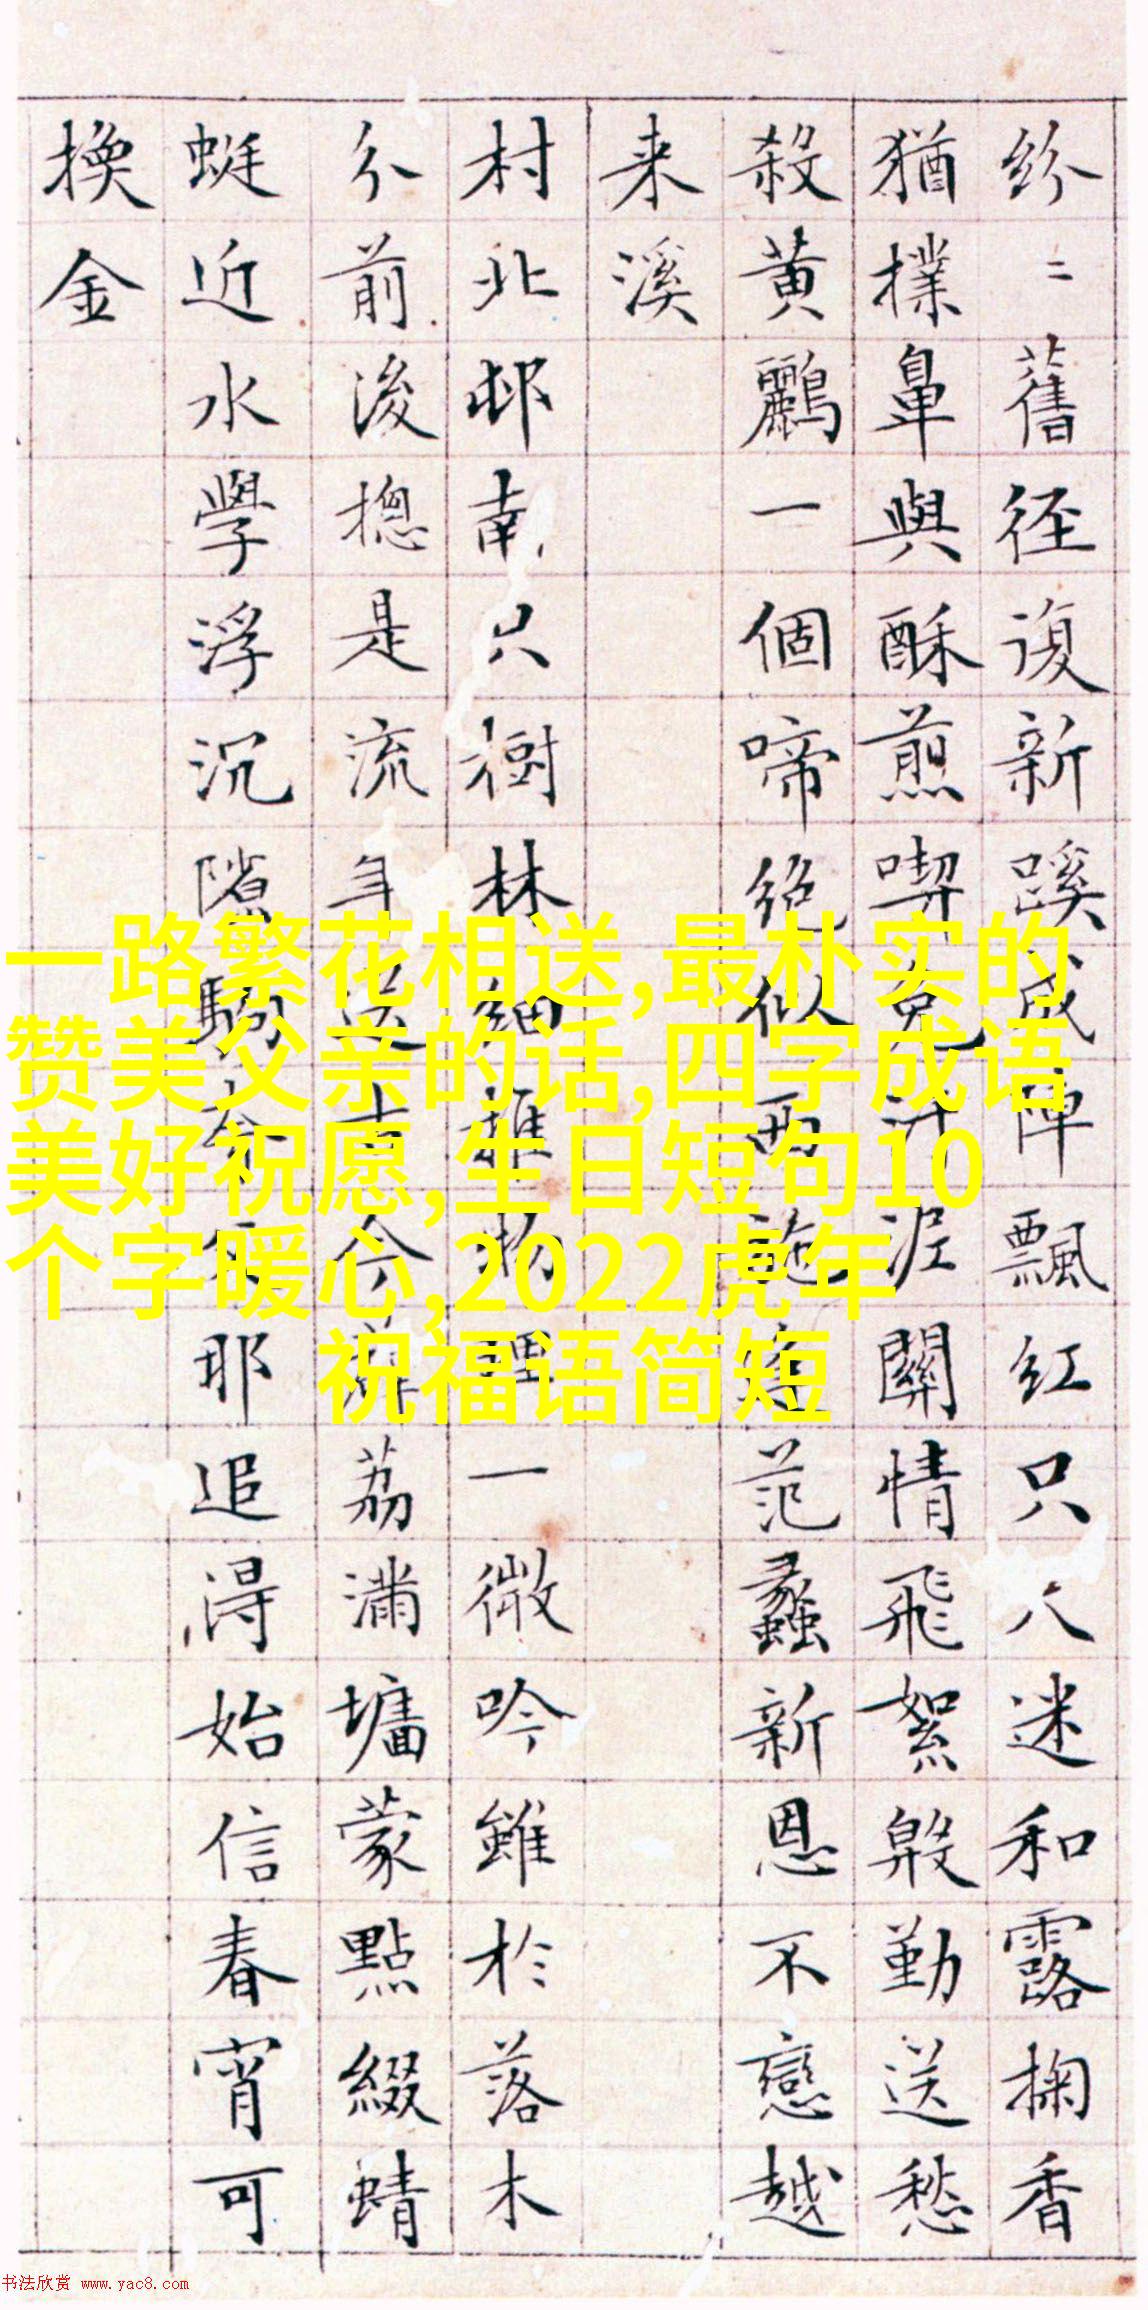 紛〻舊徑復新蹊成陣飄紅只迷和露掬香
猶撲鼻與酥煎喫免汙泥關情飛絮殷勤送愁
殺黃鸝一個啼絕似西施范蠡新恩不戀越
来溪
村北邨南只樹林細推物理一微吟雖於落木
分前後摠是流年送古今薜荔滿墉蒙點綴蜻
蜓近水學浮沉隙駒奈耶追得始信春宵可
換金
一路繁花相送,最朴实的
赞美父亲的话,四字成语
美好祝愿,生日短句10
个字暖心,2022虎年
祝福语简短
书法欣赏 www.yac8.com